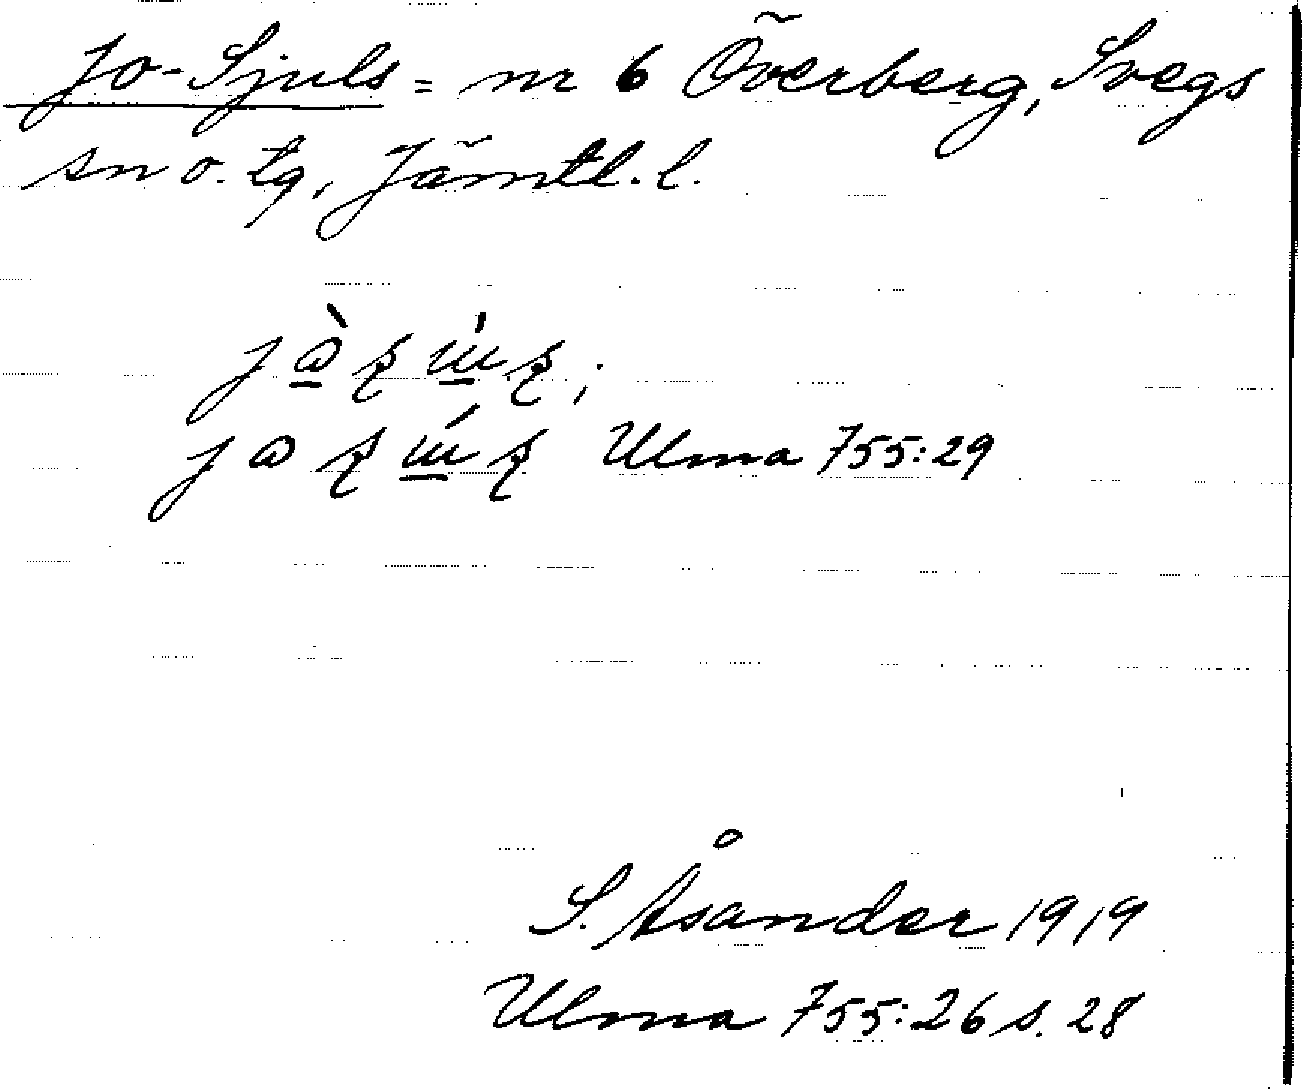 Jo-Sjuls = nr 6 Överberg, Svegs
sn o. tg, Jämtl. l.
Ulma 755:29
S. Åsander 1919
Ulma 755:26 s. 28